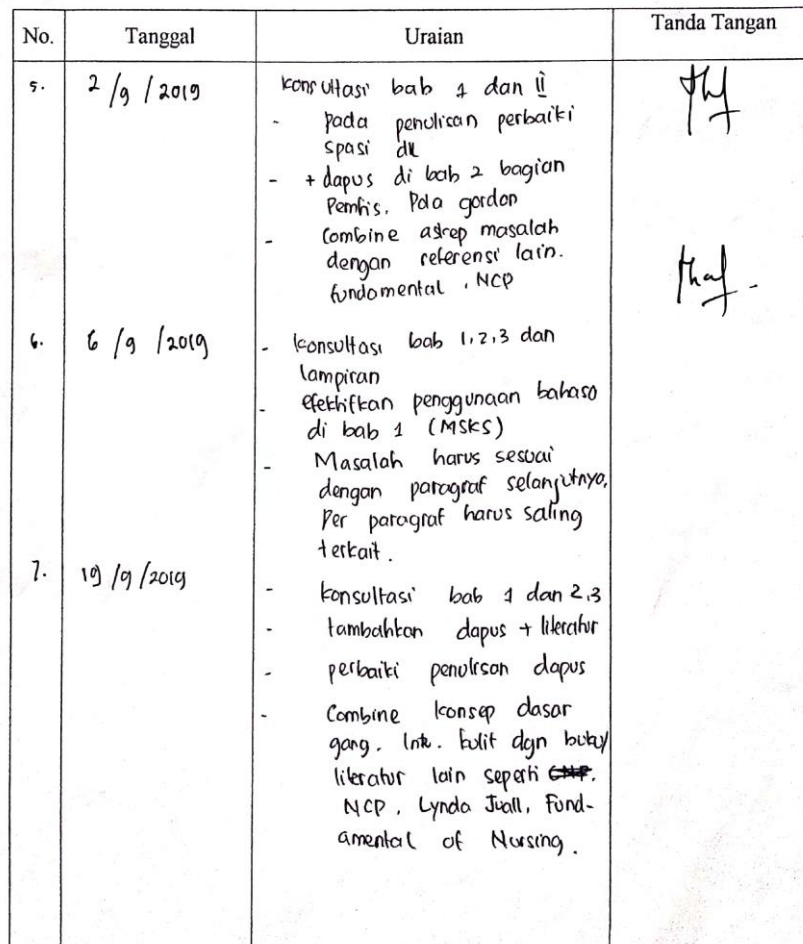 No. Tanggal Uraian Tanda Tangan
5. 2/9/2019 Konsultasi bab 1 dan II
- pada penulisan perbaiki
spasi dll
- + dapus di bab 2 bagian
Pemfis. Pola gordon
- Combine askep masalah
dengan referensi lain.
fundamental, NCP
6. 6/9/2019 - Konsultasi bab 1,2,3 dan
lampiran
- efektifkan penggunaan bahasa
di bab 1 (MSKS)
- Masalah harus sesuai
dengan paragraf selanjutnya.
Per paragraf harus saling
terkait.
7. 19/9/2019 - konsultasi bab 1 dan 2,3
- tambahkan dapus + literatur
- perbaiki penulisan dapus
- Combine konsep dasar
gang. Int. kulit dgn buku/
literatur lain seperti
NCP, Lynda Juall, Fund-
amental of Nursing.